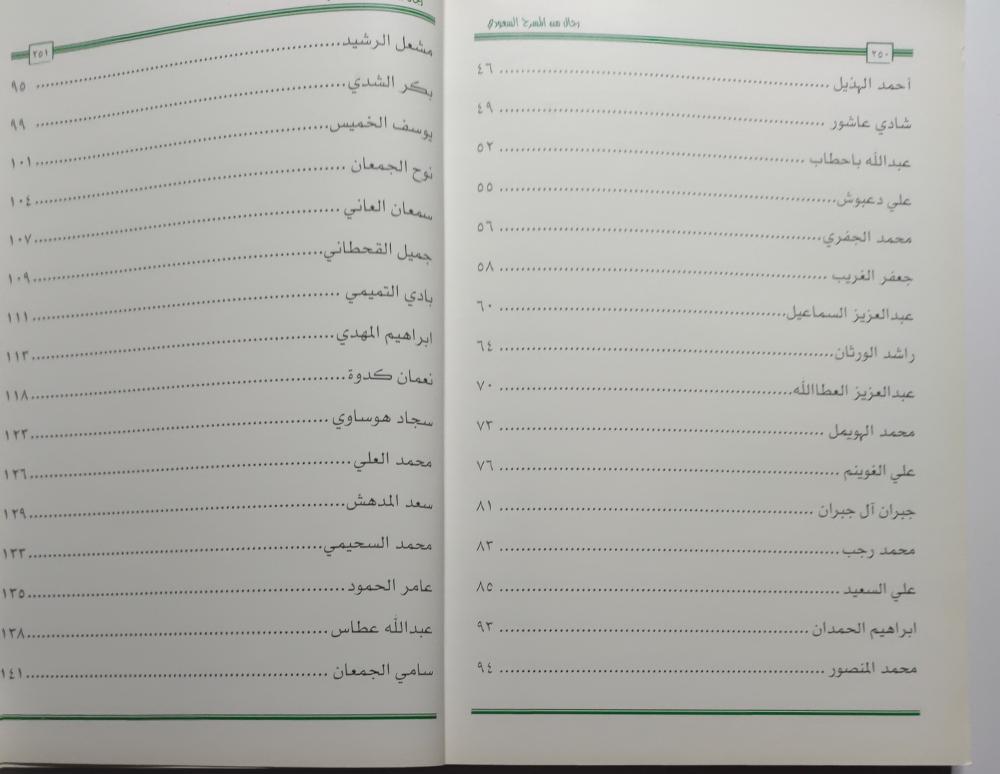 رجال من المسرح السعودي
٢٥٠
أحمد الهذيل ................ ٤٦
شادي عاشور ................ ٤٩
عبدالله باحطاب ................ ٥٢
علي دعبوش ................ ٥٥
محمد الجفري ................ ٥٦
جعفر الغريب ................ ٥٨
عبدالعزيز السماعيل ................ ٦٠
راشد الورثان ................ ٦٤
عبدالعزيز العطاالله ................ ٧٠
محمد الهويمل ................ ٧٣
علي الغوينم ................ ٧٦
جبران آل جبران ................ ٨١
محمد رجب ................ ٨٣
علي السعيد ................ ٨٥
ابراهيم الحمدان ................ ٩٣
محمد المنصور ................ ٩٤
٢٥١
مشعل الرشيد ................ ٩٥
بكر الشدي ................ ٩٩
يوسف الخميس ................ ١٠١
نوح الجمعان ................ ١٠٤
سمعان العاني ................ ١٠٧
جميل القحطاني ................ ١٠٩
بادي التميمي ................ ١١١
ابراهيم المهدي ................ ١١٣
نعمان كدوة ................ ١١٨
سجاد هوساوي ................ ١٢٣
محمد العلي ................ ١٢٦
سعد المدهش ................ ١٢٩
محمد السحيمي ................ ١٣٣
عامر الحمود ................ ١٣٥
عبدالله عطاس ................ ١٣٨
سامي الجمعان ................ ١٤١